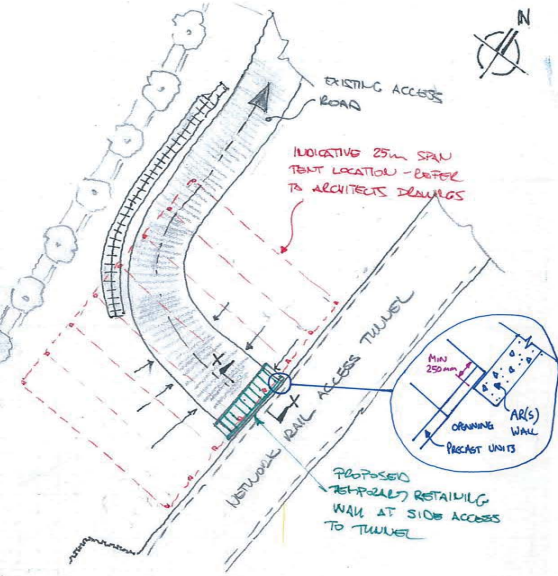 N
EXISTING ACCESS
ROAD
INDICATIVE 25m SPAN
TENT LOCATION - REFER
TO ARCHITECTS DRAWINGS
NETWORK RAIL ACCESS TUNNEL
X
X
MIN
250mm
OPENING
AR(S)
WALL
PRECAST UNITS
PROPOSED
TEMPORARY RETAINING
WALL AT SIDE ACCESS
TO TUNNEL